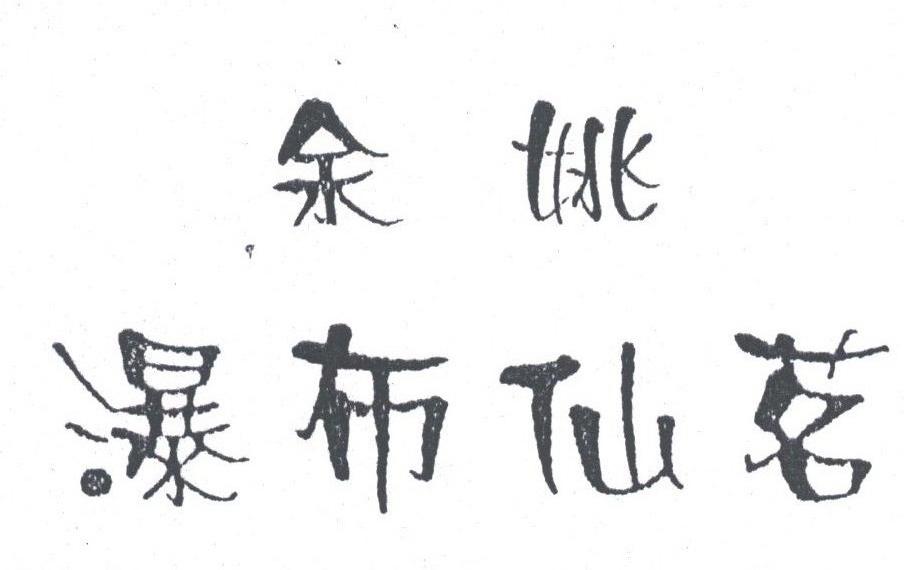 余姚
瀑布仙茗